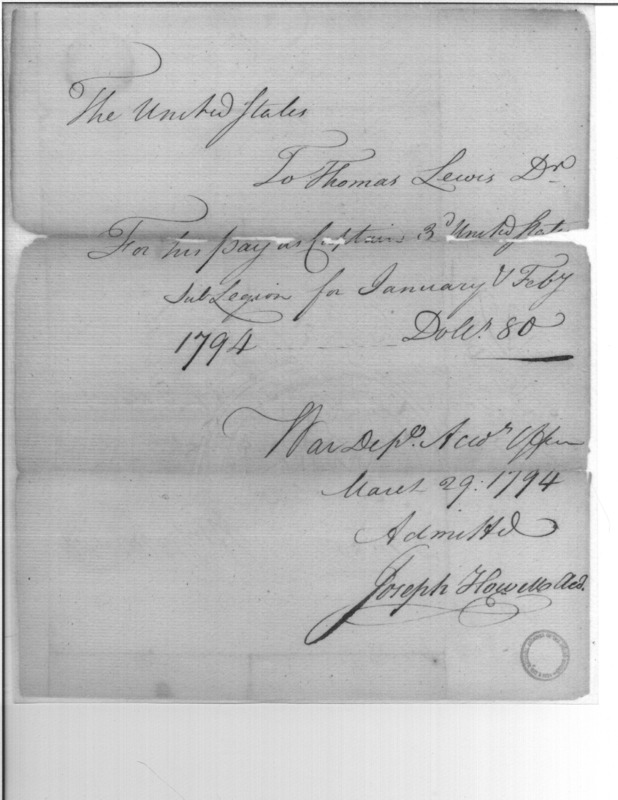 The United States
To Thomas Lewis Dr
For his pay as Captain 3d United States
Sub Legion for January & Feby
1794 Dolls. 80
War Dept. Accts Office
March 29: 1794
Admitted
Joseph Howell Acct.